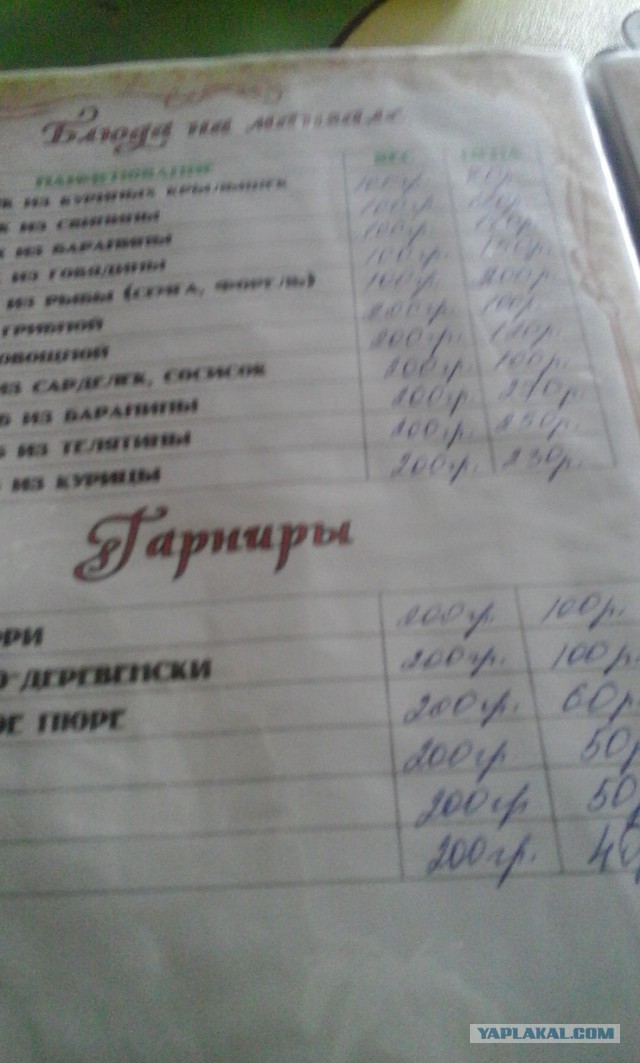 Блюда на мангале
НАИМЕНОВАНИЕ ВЕС ЦЕНА
К ИЗ КУРИНЫХ КРЫЛЫШЕК 100гр. 80р.
К ИЗ СВИНИНЫ 100гр.
К ИЗ БАРАНИНЫ 100гр.
ИЗ ГОВЯДИНЫ 100гр. 150р.
ИЗ РЫБЫ (СЕМГА, ФОРЕЛЬ) 100гр. 200р.
ГРИБНОЙ 200гр. 100р.
ОВОЩНОЙ 200гр. 120р.
ИЗ САРДЕЛЕК, СОСИСОК 200гр. 100р.
Б ИЗ БАРАНИНЫ 200гр. 250р.
ИЗ ТЕЛЯТИНЫ 200гр. 250р.
ИЗ КУРИЦЫ 200гр. 230р.
Гарниры
РИ 200гр. 100р.
О-ДЕРЕВЕНСКИ 200гр. 100р.
ОЕ ПЮРЕ 200гр. 60р.
200гр 50р
200гр 50р
200гр. 40
YAPLAKAL.COM